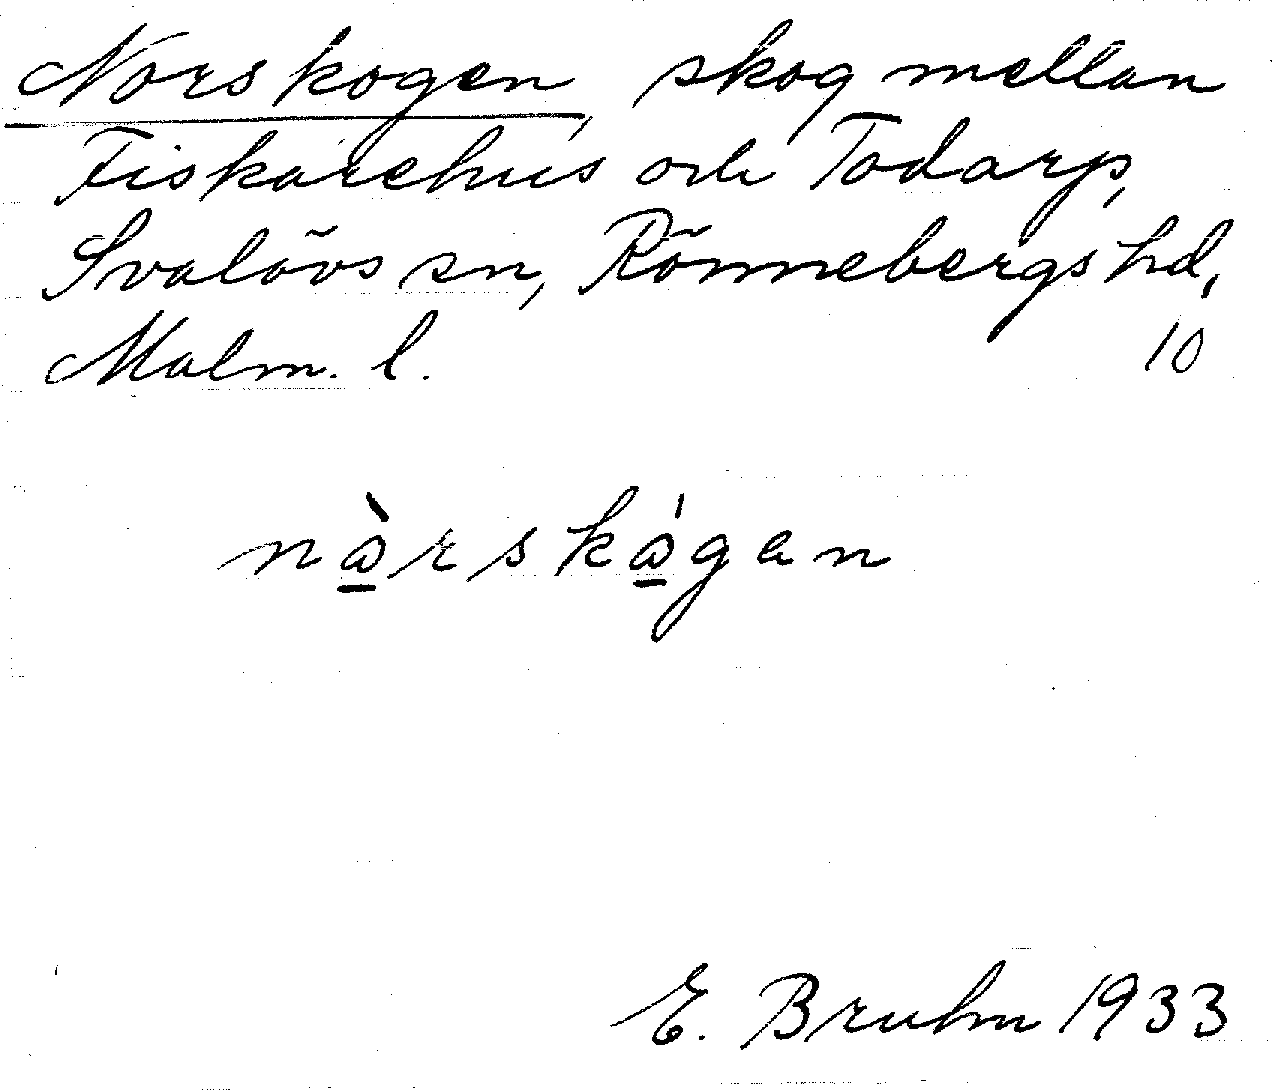 Norskogen, skog mellan
Fiskarehus och Todarp,
Svalövs sn, Rönnebergs hd,
Malm. l. 10
nòrskógen
E. Bruhn 1933